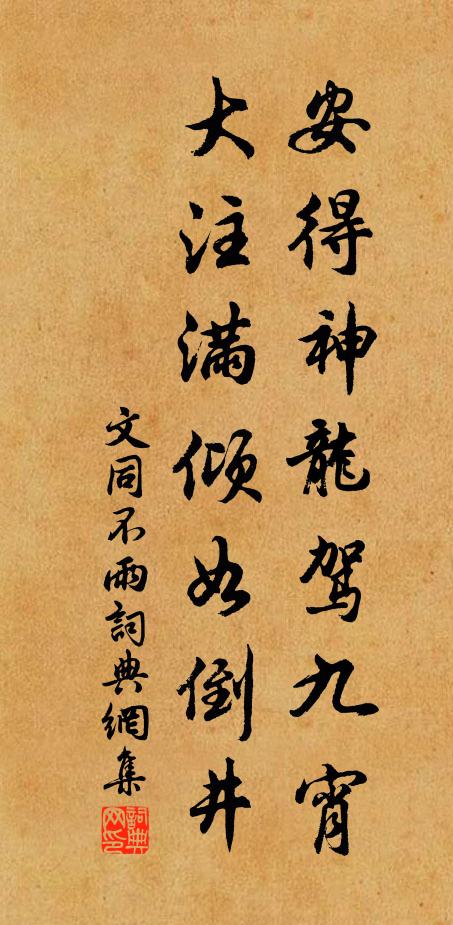 安得神龍駕九宵
大注滿傾如倒井
文同不雨詞典網集
詞典网印